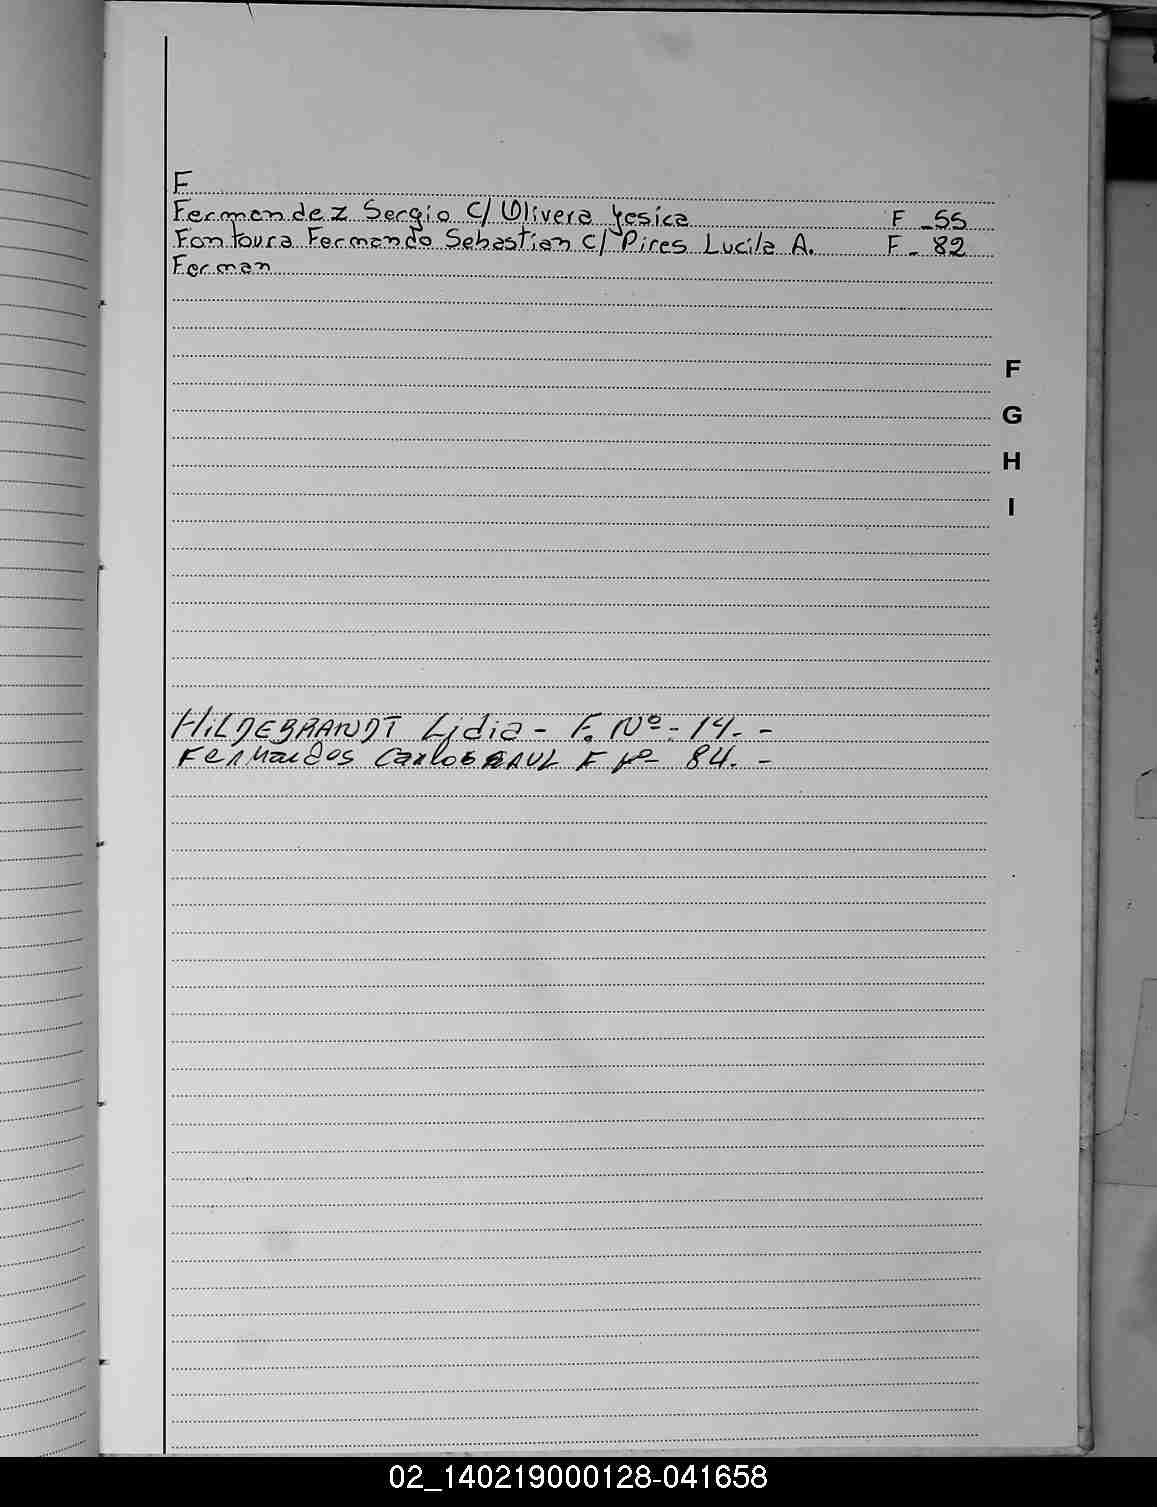 F
Fernandez Sergio C/ Olivera Yesica F - 55
Fontoura Fernando Sebastian C/ Pires Lucila A. F - 82
Fernan
F
G
H
I
HILDEBRANDT Lidia - F. Nº - 14. -
Carlos RAUL F Nº 84. -
02_140219000128-041658